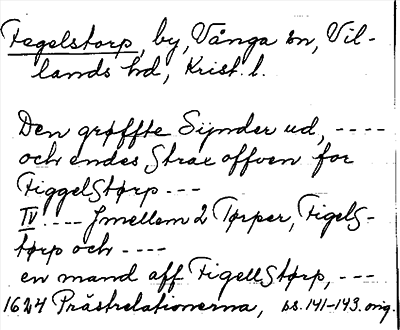 Fegelstorp, by, Vånga sn, Vil-
lands hd, Krist. l.
Den grøffte Sijnder ud, ----
och endes Strax offven for
Figgelstørp ---
IV. --- Jmellem 2 Tørper, Figels-
tørp och ----
en mand aff Figellstørp, ---
1624 Prästrelationerna, ss. 141-143. orig.